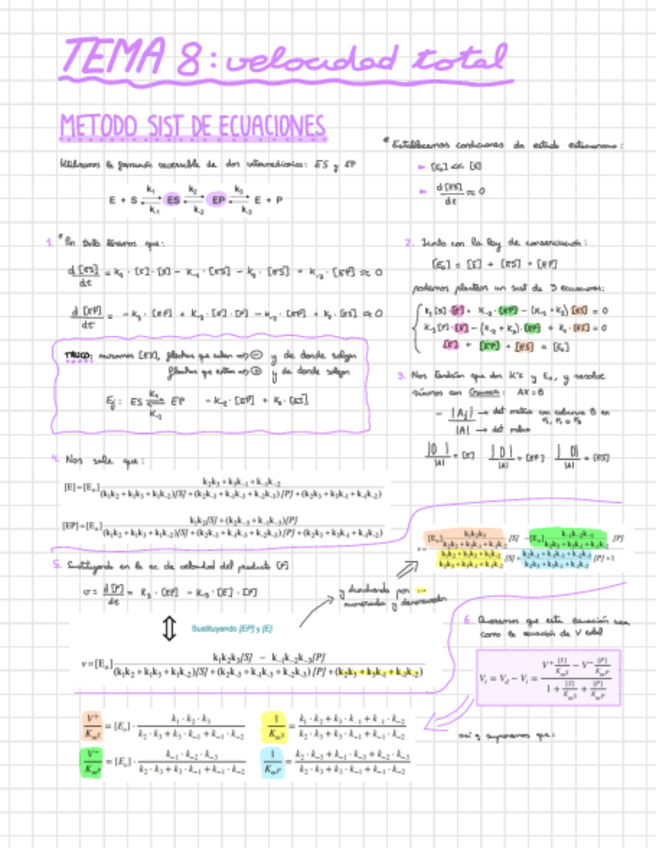 TEMA 8: velocidad total
METODO SIST DE ECUACIONES
Utilizamos la formación reversible de dos intermediarios: ES y EP
E + S ⇌ ES ⇌ EP ⇌ E + P
k₁ k₂ k₃
k₋₁ k₋₂ k₋₃
* Establecemos condiciones de estado estacionario:
► [E₀] << [S]
► d[ES]/dt ≈ 0
1. * Por tanto tenemos que:
d[ES]/dt = k₁ · [E] · [S] − k₋₁ · [ES] − k₂ · [ES] + k₋₂ · [EP] ≈ 0
d[EP]/dt = − k₃ · [EP] + k₋₃ · [E] · [P] − k₋₂ · [EP] + k₂ · [ES] ≈ 0
TRUCO: miramos [EX], flechas que salen → ⊖ y de donde salgan
flechas que entren → ⊕ y de donde salgan
Ej: ES ⇌ EP − k₋₂ · [EP] + k₂ · [ES]
2. Junto con la ley de conservación:
[E₀] = [E] + [ES] + [EP]
podemos plantear un sist de 3 ecuaciones:
k₁[S]·[E] + k₋₂·[EP] − (k₋₁ + k₂)·[ES] = 0
k₋₃[P]·[E] − (k₋₂ + k₃)·[EP] + k₂·[ES] = 0
[E] + [EP] + [ES] = [E₀]
3. Nos tendrían que dar K's y E₀, y resolve
ríamos con Cramer: AX = B
− |Aj| → det matriz con columna B en
|A| → det matriz
|D|/|A| = [E] |D|/|A| = [EP] |D|/|A| = [ES]
4. Nos sale que:
[E]=[E₀] (k₂k₃ + k₃k₋₁ + k₋₁k₋₂) / ((k₁k₂ + k₁k₃ + k₁k₋₂)[S] + (k₂k₋₃ + k₋₁k₋₃ + k₋₂k₋₃)[P] + (k₂k₃ + k₃k₋₁ + k₋₁k₋₂))
[EP]=[E₀] (k₁k₂[S] + (k₂k₋₃ + k₋₁k₋₃)[P]) / ((k₁k₂ + k₁k₃ + k₁k₋₂)[S] + (k₂k₋₃ + k₋₁k₋₃ + k₋₂k₋₃)[P] + (k₂k₃ + k₃k₋₁ + k₋₁k₋₂))
5. Sustituyendo en la ec de velocidad del producto [P]
v = d[P]/dt = k₃ · [EP] − k₋₃ · [E] · [P]
Sustituyendo [EP] y [E]
y dividiendo por ...
numerador y denominador
v=[E₀] (k₁k₂k₃[S] − k₋₁k₋₂k₋₃[P]) / ((k₁k₂ + k₁k₃ + k₁k₋₂)[S] + (k₂k₋₃ + k₋₁k₋₃ + k₋₂k₋₃)[P] + (k₂k₃ + k₃k₋₁ + k₋₁k₋₂))
6. Queremos que esta ecuación sea
como la ecuación de V total
V_t = V_d − V_i = (V⁺ [S]/K_mS − V⁻ [P]/K_mP) / (1 + [S]/K_mS + [P]/K_mP)
así q suponemos que:
V⁺/K_mS = [E₀] · (k₁ · k₂ · k₃) / (k₂ · k₃ + k₃ · k₋₁ + k₋₁ · k₋₂)
1/K_mS = (k₁ · k₂ + k₁ · k₃ + k₁ · k₋₂) / (k₂ · k₃ + k₃ · k₋₁ + k₋₁ · k₋₂)
V⁻/K_mP = [E₀] · (k₋₁ · k₋₂ · k₋₃) / (k₂ · k₃ + k₃ · k₋₁ + k₋₁ · k₋₂)
1/K_mP = (k₂ · k₋₃ + k₋₁ · k₋₃ + k₋₂ · k₋₃) / (k₂ · k₃ + k₃ · k₋₁ + k₋₁ · k₋₂)